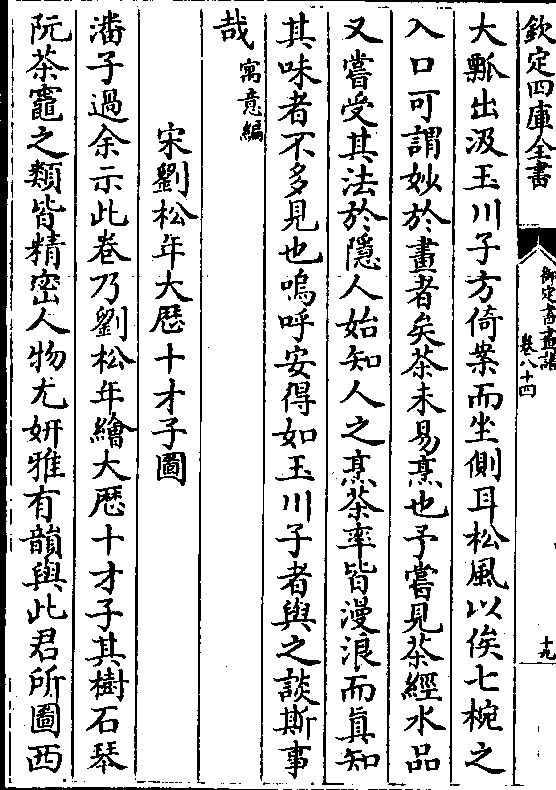 欽定四庫全書
御定書畫譜
卷八十四
十九
大瓢出汲玉川子方倚案而坐側耳松風以俟七椀之
入口可謂妙於畫者矣茶未易烹也予嘗見茶經水品
又嘗受其法於隱人始知人之烹茶率皆漫浪而真知
其味者不多見也嗚呼安得如玉川子者與之談斯事
哉寓意編
宋劉松年大厯十才子圖
潘子過余示此卷乃劉松年繪大厯十才子其樹石琴
阮茶竈之類皆精密人物尤妍雅有韻與此君所圖西